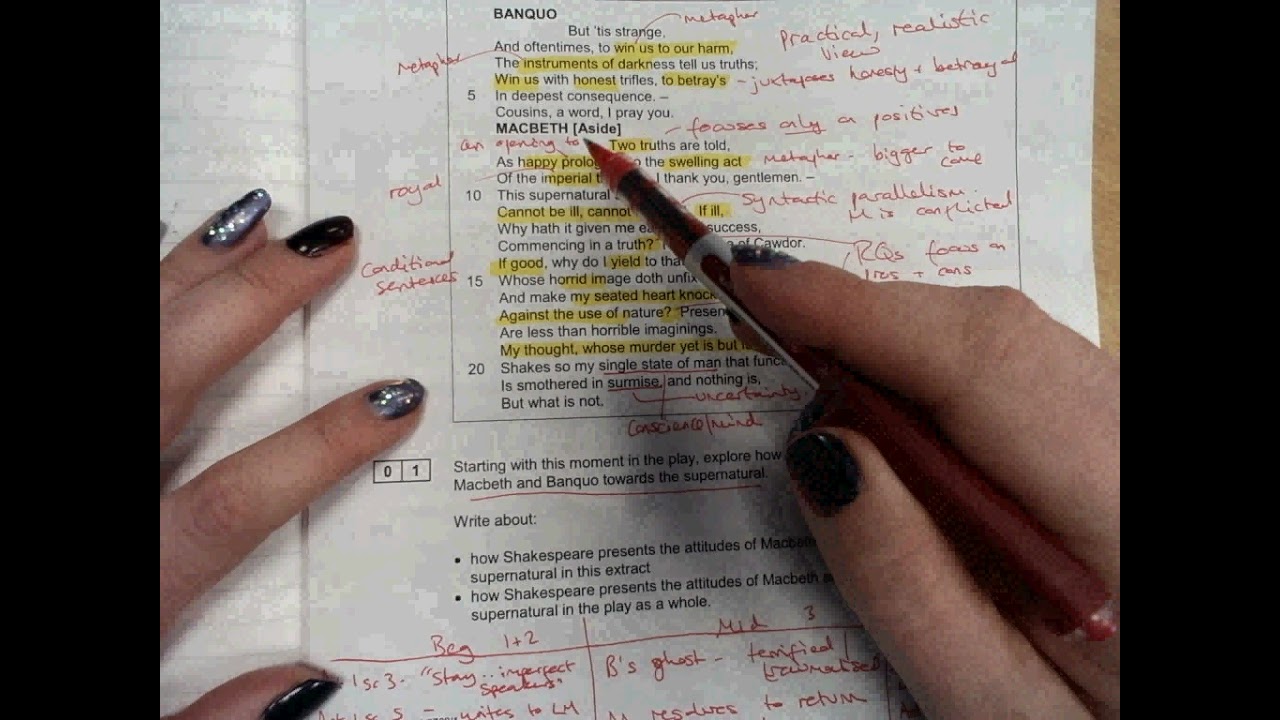 BANQUO
metapher
But 'tis strange,
And oftentimes, to win us to our harm,
Practical, realistic
view
Metapher
The instruments of darkness tell us truths;
Win us with honest trifles, to betray's
- juxtaposes honesty + betrayal
5 In deepest consequence. –
Cousins, a word, I pray you.
MACBETH [Aside]
- focusses only on positives
an opening to
Two truths are told,
As happy prolog o the swelling act
Metapher - bigger to
come
royal
Of the imperial t I thank you, gentlemen. –
10 This supernatural
Syntactic parallelism.
M is conflicted
Cannot be ill, cannot If ill,
Why hath it given me ea success,
Commencing in a truth? of Cawdor.
RQs focus on
pros + cons
Conditional
sentences
If good, why do I yield to tha
15 Whose horrid image doth unfix
And make my seated heart knock
Against the use of nature? Presen
Are less than horrible imaginings.
My thought, whose murder yet is but
20 Shakes so my single state of man that func
Is smothered in surmise, and nothing is,
uncertainty
But what is not.
Conscience/mind
0 1
Starting with this moment in the play, explore how
Macbeth and Banquo towards the supernatural.
Write about:
• how Shakespeare presents the attitudes of Macbeth
supernatural in this extract
• how Shakespeare presents the attitudes of Macbeth a
supernatural in the play as a whole.
Beg 1+2
Mid 3
1 sc 3 - "Stay.. imperfect
speakers"
B's ghost - terrified
traumatised
Act 1 sc 5 - writes to LM
M resolves to return